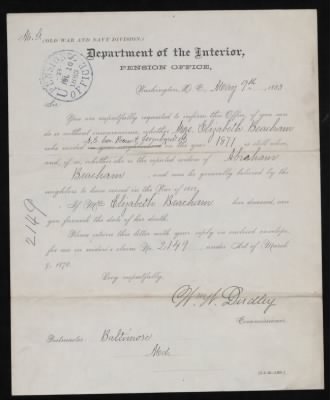 (OLD WAR AND NAVY DIVISION.)
Department of the Interior,
PENSION OFFICE,
Washington, D. C., May 9th, 1883
Sir:
You are respectfully requested to inform this Office, if you can
do so without inconvenience, whether Mrs. Elizabeth Beacham
who resided
in the year 1871 is still alive,
and, if so, whether she is the reputed widow of Abraham
Beacham, and was generally believed by the
neighbors to have served in the War of 1812.
If Mrs. Elizabeth Beacham has deceased, can
you furnish the date of her death.
Please return this letter with your reply in enclosed envelope,
for use in widow's claim No. 2149 under Act of March
9, 1878.
Very respectfully,
Wm. W. Dudley
Commissioner.
Postmaster, Baltimore
Md.
2149